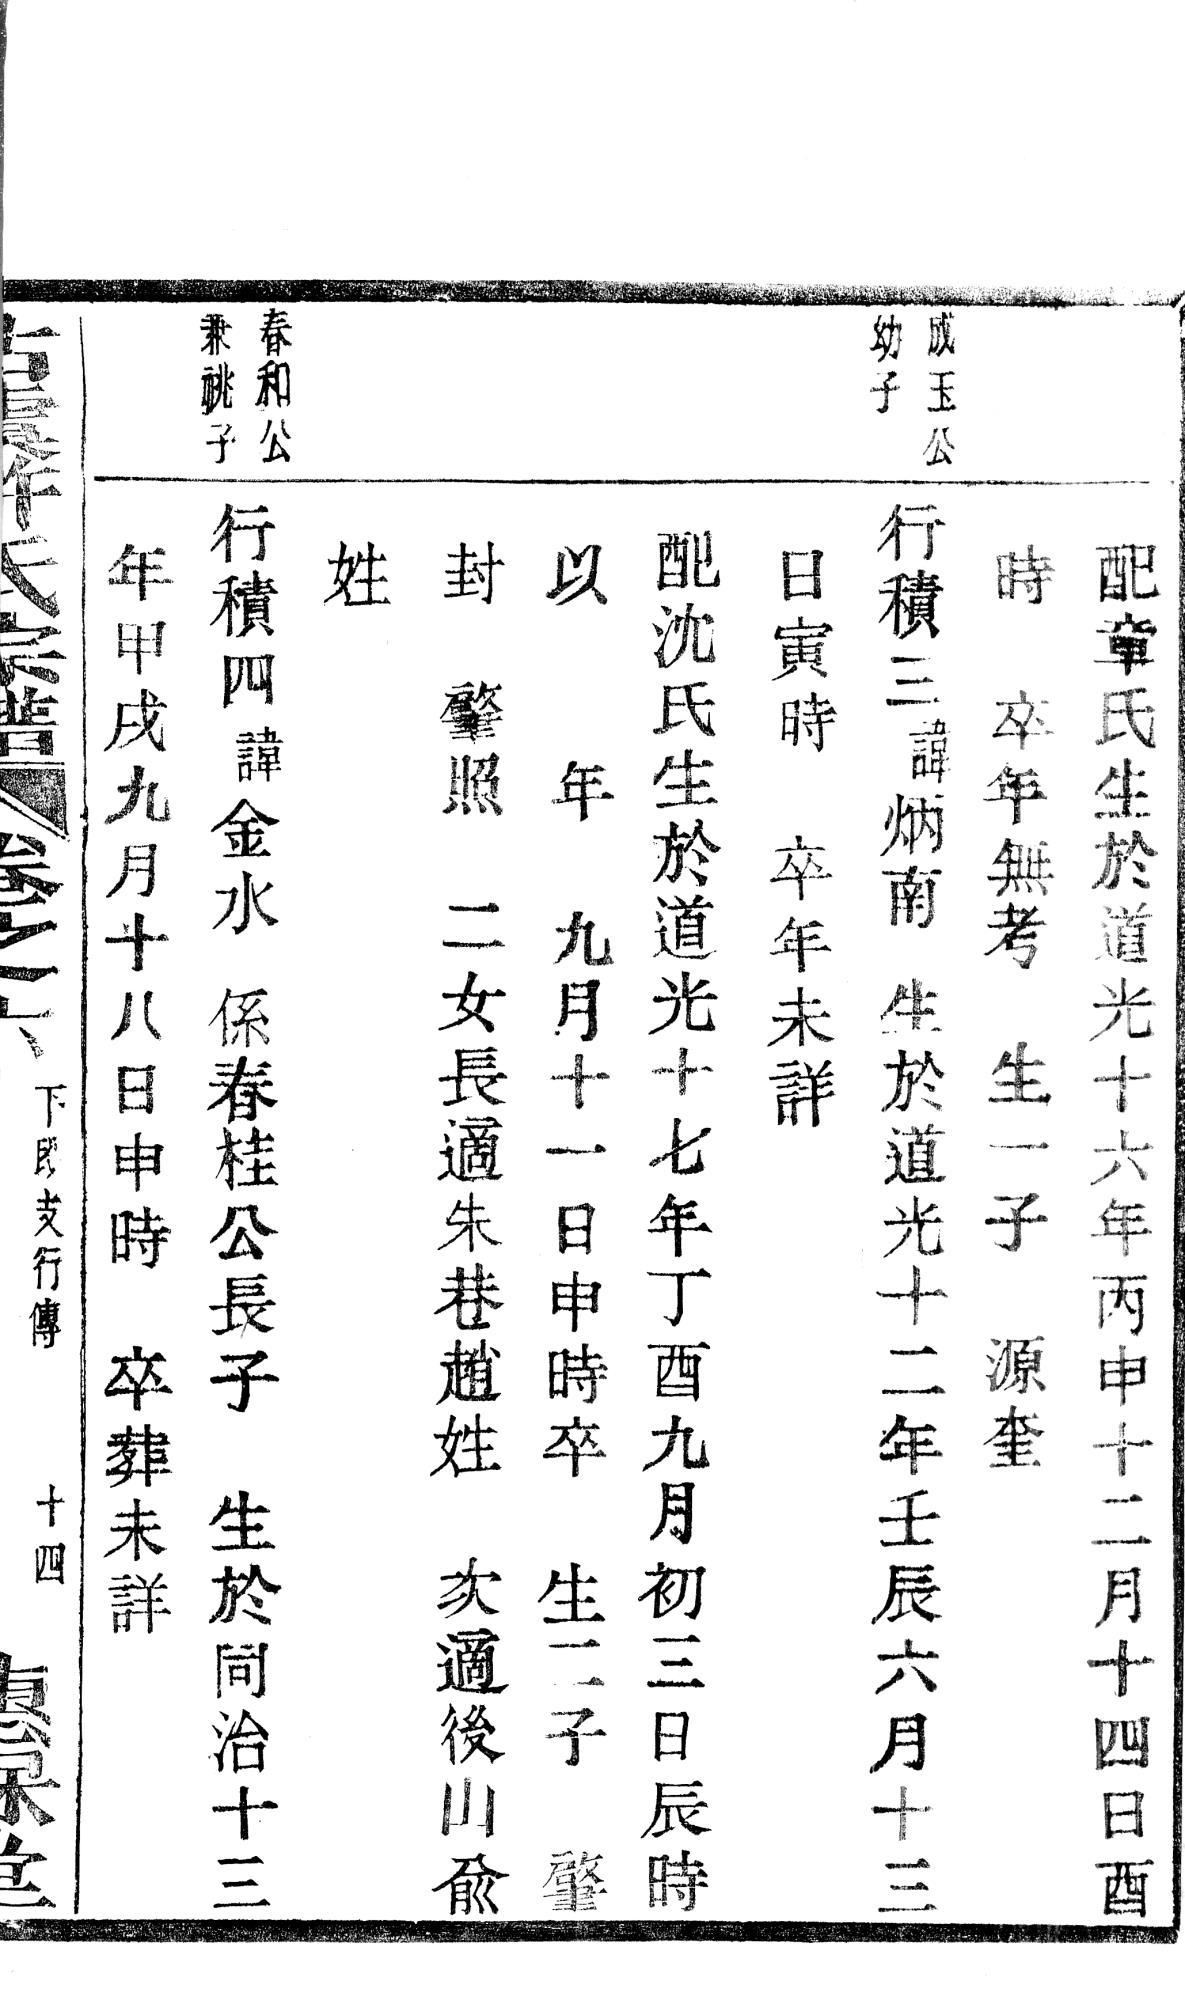 配章氏生於道光十六年丙申十二月十四日酉
時　卒年無考　生一子　源奎
成玉公
幼子
行積三諱炳南　生於道光十二年壬辰六月十三
日寅時　卒年未詳
配沈氏生於道光十七年丁酉九月初三日辰時
以　年　九月十一日申時卒　生二子　肇
封　肇照　二女長適朱巷趙姓　次適後山俞
姓
春和公
兼祧子
行積四諱金水　係春桂公長子　生於同治十三
年甲戌九月十八日申時　卒葬未詳
氏宗譜　卷之六　下民支行傳　十四